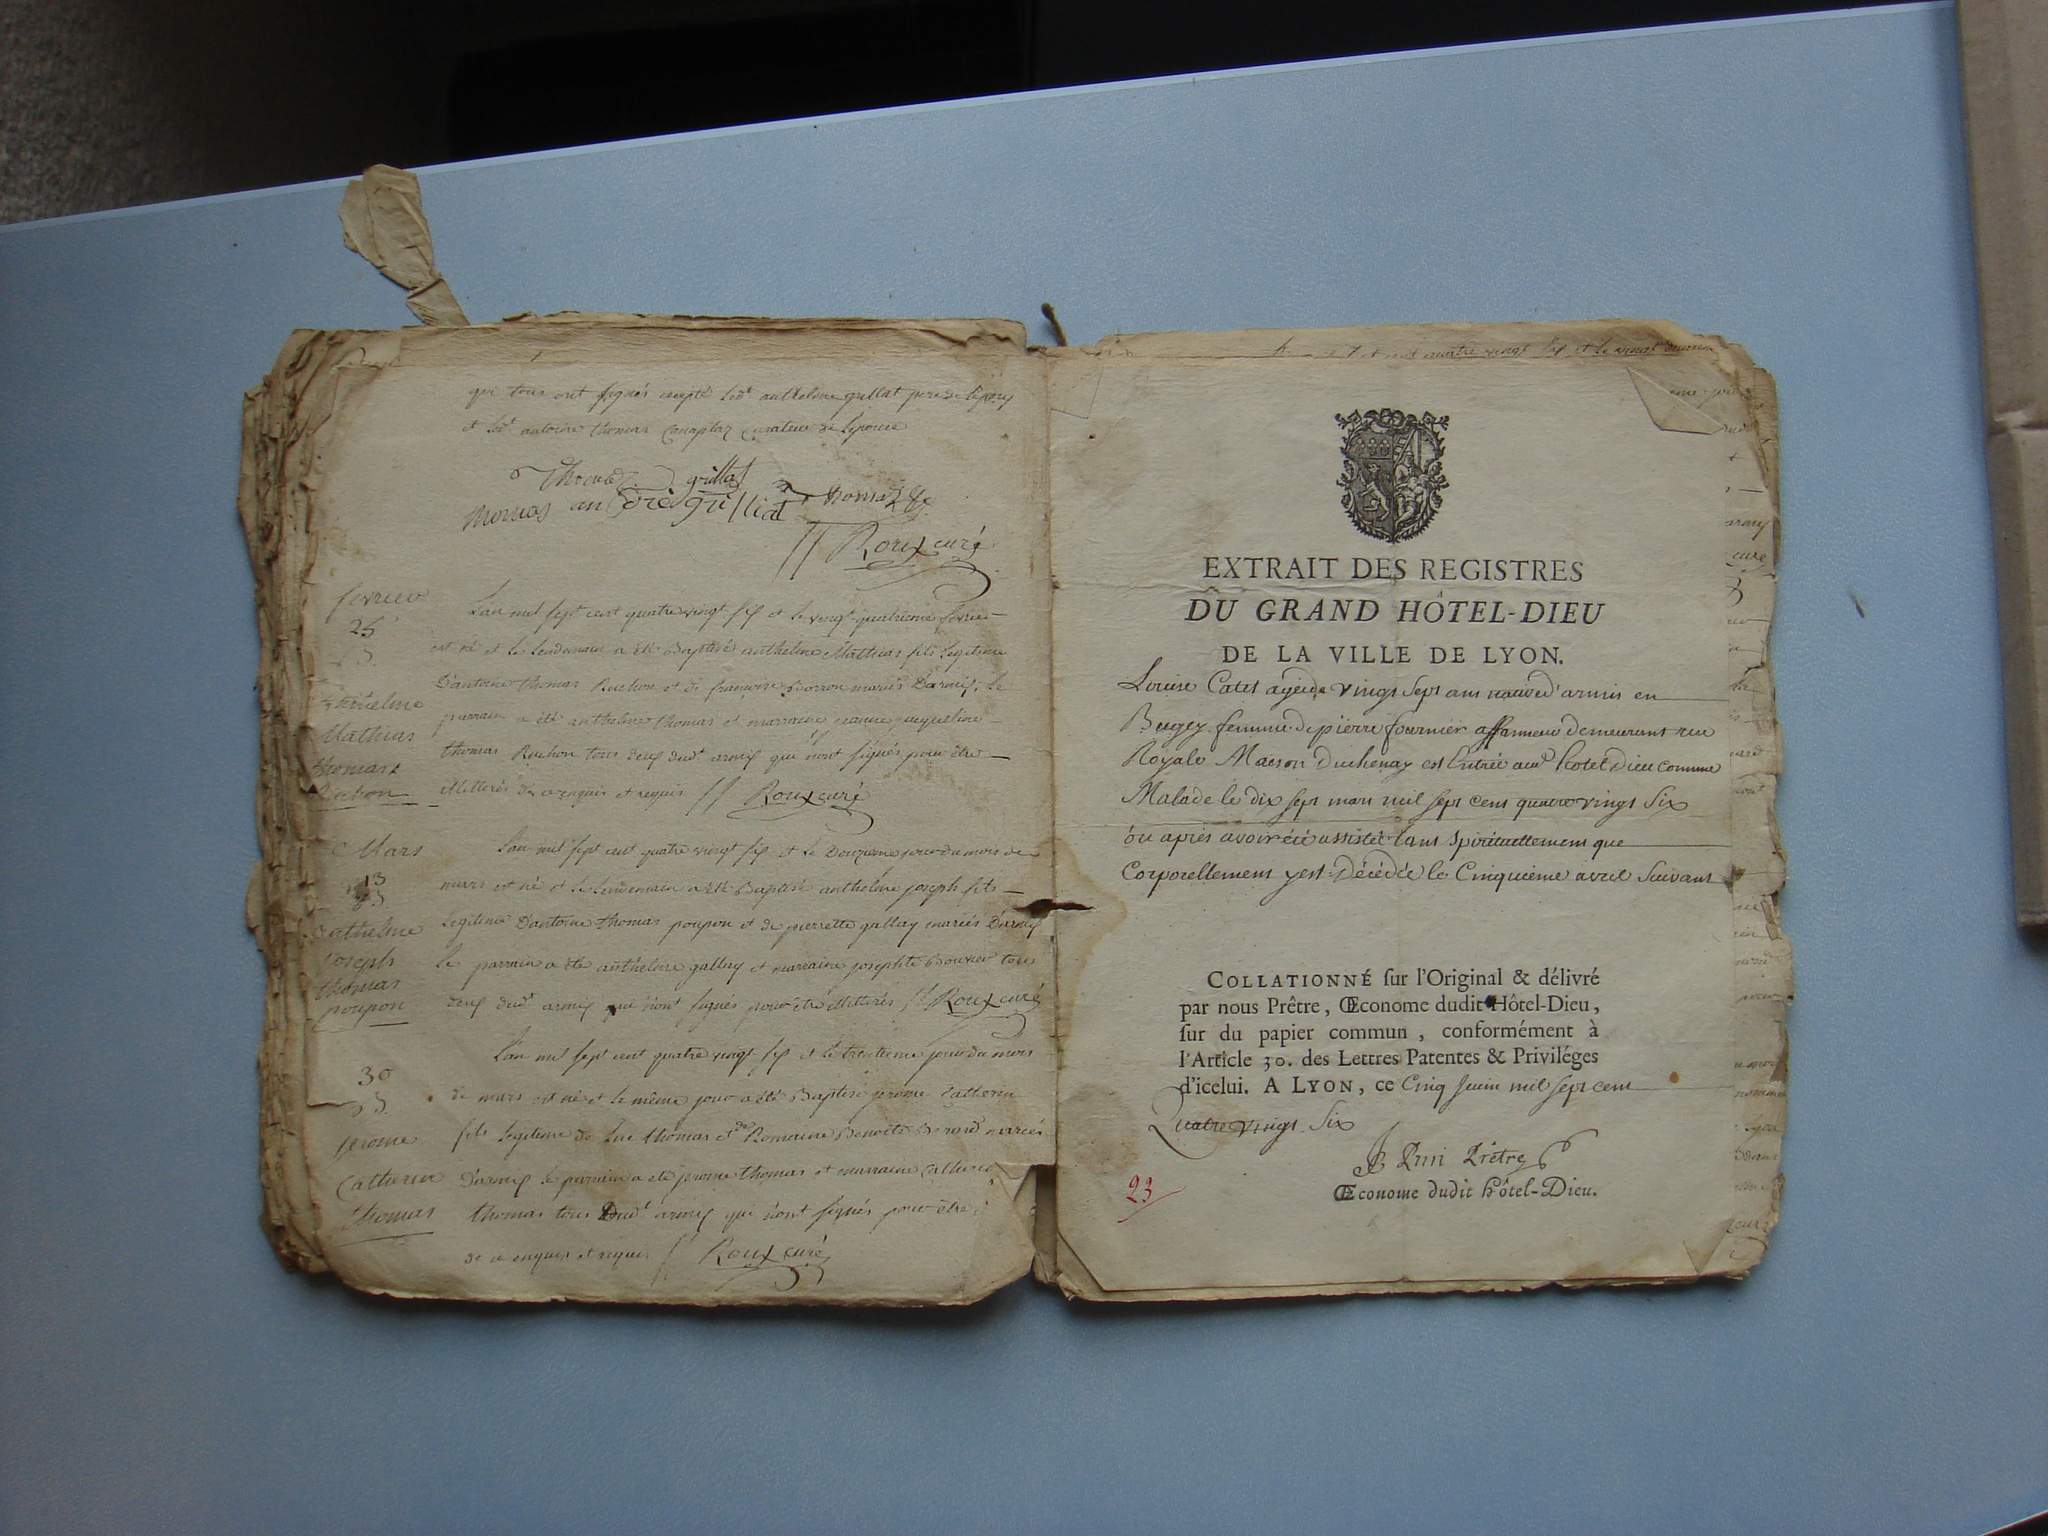 qui tous ont signés excepté led.t anthelme gullat pere de l'epoux
et led.t antoine thomas Canaplaz Curateur de l'epouse
Thomas gillat
thomas andré guillat thomas
Roux curé
fevrier
25
L'an mil sept cent quatre vingt six et le vingt-quatrieme fevrier
est né et le lendemain a été Baptisé anthelme Mathias fils legitime
D'antoine thomas Ruchon et de francoise Borron mariés D'armix, le
parrain a été anthelme thomas et marraine jeanne jacqueline
thomas Ruchon tous deux dud.t armix qui n'ont signés pour être
illitterés de ce enquis et requis // Roux curé
anthelme
Mathias
thomas
Ruchon
Mars
13
L'an mil sept cent quatre vingt six et le Douzieme jour du mois de
mars est né et le lendemain a été Baptisé anthelme joseph fils
legitime D'antoine thomas poupon et de pierrette gallay mariés D'armix
le parrain a été anthelme gallay et marraine josephte Bouvier tous
deux dud.t armix que n'ont signés pour être illitterés // Roux curé
anthelme
joseph
thomas
poupon
30
L'an mil sept cent quatre vingt six et le trentieme jour du mois
de mars est né et le même jour a été Baptisé jerome Catherin
fils legitime de Luc thomas et de Romaine Benoite Berard mariés
D'armix le parrain a été jerome thomas et marraine Catherine
thomas tous Dud.t armix qui n'ont signés pour être
de ce enquis et requis // Roux curé
jerome
Catherin
thomas
quatre vingt six et le vingt
EXTRAIT DES REGISTRES
DU GRAND HÔTEL-DIEU
DE LA VILLE DE LYON.
Louise Catel agée de vingt sept ans native d'armis en
Bugey femme de pierre fournier affanneur demeurant rue
Royale Maison Duchenay est Entrée aud. hotel Dieu comme
Malade le dix sept mars mil sept cent quatre vingt Six
ou après avoir été assistée tant Spirituellement que
Corporellement y est Décédée le Cinquieme avril Suivant
COLLATIONNÉ sur l'Original & délivré
par nous Prêtre, Œconome dudit Hôtel-Dieu,
sur du papier commun, conformément à
l'Article 30. des Lettres Patentes & Priviléges
d'icelui. A LYON, ce Cinq Juin mil sept cent
Quatre vingt Six
Prêtre
Œconome dudit Hôtel-Dieu.
23